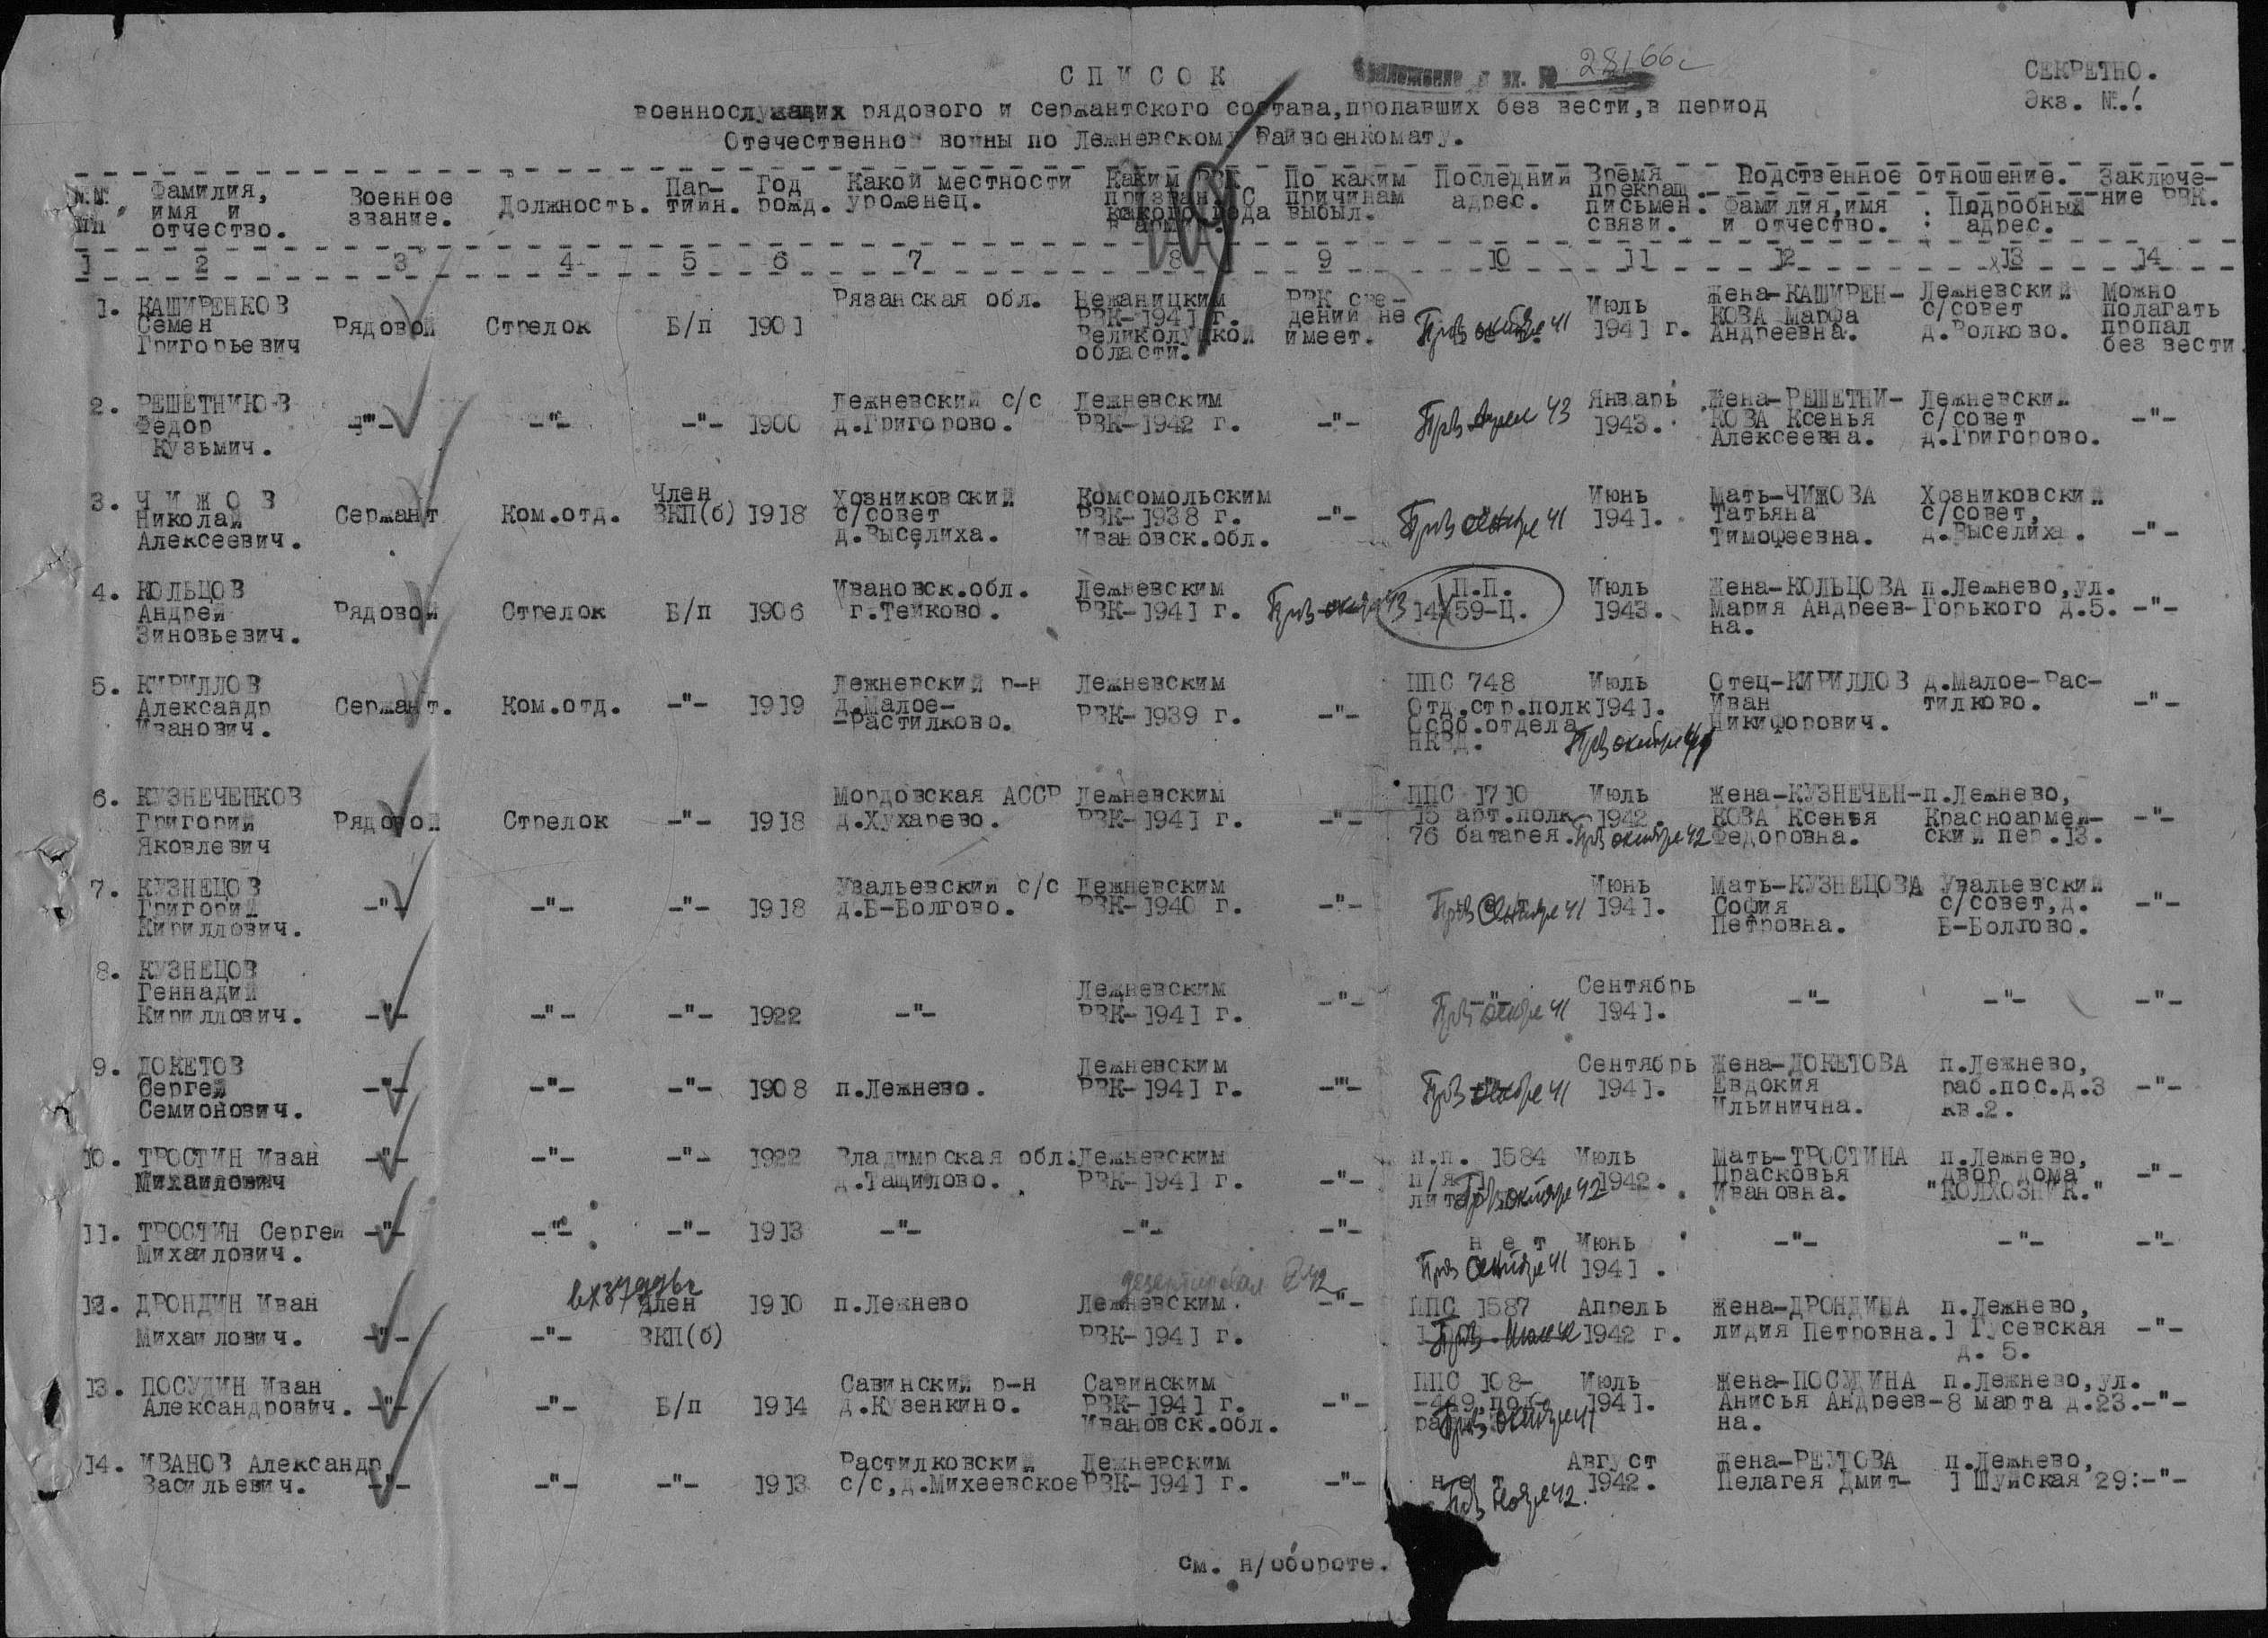 СПИСОК
Приложение к вх. № 28166с
СЕКРЕТНО.
Экз. №.1
военнослужащих рядового и сержантского состава, пропавших без вести, в период
Отечественной войны по Лежневскому Райвоенкомату.
№№ пп Фамилия, имя и отчество. Военное звание. Должность. Пар-тийн. Год рожд. Какой местности уроженец. Каким РВК призван. С какого года в армии. По каким причинам выбыл. Последний адрес. Время прекращ. письмен. связи. Родственное отношение. Фамилия, имя и отчество. Подробный адрес. Заключе-ние РВК.
1 2 3 4 5 6 7 8 9 10 11 12 13 14
1. КАШИРЕНКОВ Рязанская обл. Бежаницким РВК све- Июль Жена-КАШИРЕН- Лежневский Можно
Семен Рядовой Стрелок Б/п 1901 РВК-1941 г. дений не Прв октябре 41 1941 г. КОВА Марфа с/совет полагать
Григорьевич Великолуцкой имеет. Андреевна. д.Волково. пропал
области. без вести.
2. РЕШЕТНИКОВ Лежневский с/с Лежневским Январь Жена-РЕШЕТНИ- Лежневский
Федор -"- -"- -"- 1900 д.Григорово. РВК-1942 г. -"- Прв Апреле 43 1943. КОВА Ксенья с/совет -"-
Кузьмич. Алексеевна. д.Григорово.
3. ЧИЖОВ Член Хозниковский Комсомольским Июнь Мать-ЧИЖОВА Хозниковский
Николай Сержант Ком.отд. ВКП(б) 1918 с/совет РВК-1938 г. -"- Прв 41 1941. Татьяна с/совет,
Алексеевич. д.Выселиха. Ивановск.обл. Тимофеевна. д.Выселиха. -"-
4. КОЛЬЦОВ Ивановск.обл. Лежневским П.П. Июль Жена-КОЛЬЦОВА п.Лежнево,ул.
Андрей Рядовой Стрелок Б/п 1906 г.Тейково. РВК-1941 г. Прв октябре 43 14 59-Ц. 1943. Мария Андреев- Горького д.5. -"-
Зиновьевич. на.
5. КИРИЛЛОВ Лежневский р-н Лежневским ППС 748 Июль Отец-КИРИЛЛОВ д.Малое-Рас-
Александр Сержант. Ком.отд. -"- 1919 д.Малое- РВК-1939 г. -"- Отд.стр.полк 1941. Иван тилково. -"-
Иванович. -Растилково. Особ.отдела Никифорович.
НКВД. Прв октябре 41
6. КУЗНЕЧЕНКОВ Мордовская АССР Лежневским ППС 1710 Июль Жена-КУЗНЕЧЕН- п.Лежнево,
Григорий Рядовой Стрелок -"- 1918 д.Хухарево. РВК-1941 г. -"- 15 арт.полк 1942. КОВА Ксенья Красноармей- -"-
Яковлевич 76 батарея. Прв октябре 42 Федоровна. ский пер.13.
7. КУЗНЕЦОВ Увальевский с/с Лежневским Июнь Мать-КУЗНЕЦОВА Увальевский
Григорий -"- -"- -"- 1918 д.Б-Болгово. РВК-1940 г. -"- Прв Сентябре 41 1941. София с/совет,д. -"-
Кириллович. Петровна. Б-Болгово.
8. КУЗНЕЦОВ Сентябрь
Геннадий Лежневским
Кириллович. -"- -"- -"- 1922 -"- РВК-1941 г. -"- Прв 41 1941. -"- -"- -"-
9. ДОКЕТОВ Лежневским Сентябрь Жена-ДОКЕТОВА п.Лежнево,
Сергей -"- -"- -"- 1908 п.Лежнево. РВК-1941 г. -"- Прв 41 1941. Евдокия раб.пос.д.3 -"-
Семионович. Ильинична. кв.2.
10. ТРОСТИН Иван -"- -"- -"- 1922 Владимрская обл. Лежневским п.п. 1584 Июль Мать-ТРОСТИНА п.Лежнево,
Михайлович д.Тащилово. РВК-1941 г. -"- п/я 1942. Прасковья двор дома -"-
лит. Прв октябре 42 Ивановна. "КОЛХОЗНИК."
11. ТРОСТИН Сергей -"- -"- -"- 1913 -"- -"- -"- нет Июнь -"- -"- -"-
Михайлович. Прв Сентябре 41 1941.
дезертировал 42
12. ДРОНДИН Иван Член 1910 п.Лежнево Лежневским. -"- ППС 1587 Апрель Жена-ДРОНДИНА п.Лежнево,
Михайлович. -"- -"- ВКП(б) РВК-1941 г. Прв Июле 42 1942 г. Лидия Петровна. 1 Гусевская -"-
д. 5.
13. ПОСУДИН Иван Савинский р-н Савинским ППС 108- Июль Жена-ПОСУДИНА п.Лежнево,ул.
Александрович. -"- -"- Б/п 1914 д.Кузенкино. РВК-1941 г. -"- -449 1941. Анисья Андреев- 8 марта д.23. -"-
Ивановск.обл. Прв Октябре 41 на.
14. ИВАНОВ Александр Растилковский Лежневским Август Жена-РЕУТОВА п.Лежнево,
Васильевич. -"- -"- -"- 1913 с/с,д.Михеевское РВК-1941 г. -"- нет 1942. Пелагея Дмит- 1 Шуйская 29: -"-
Прв Ноябре 42.
см. н/обороте.